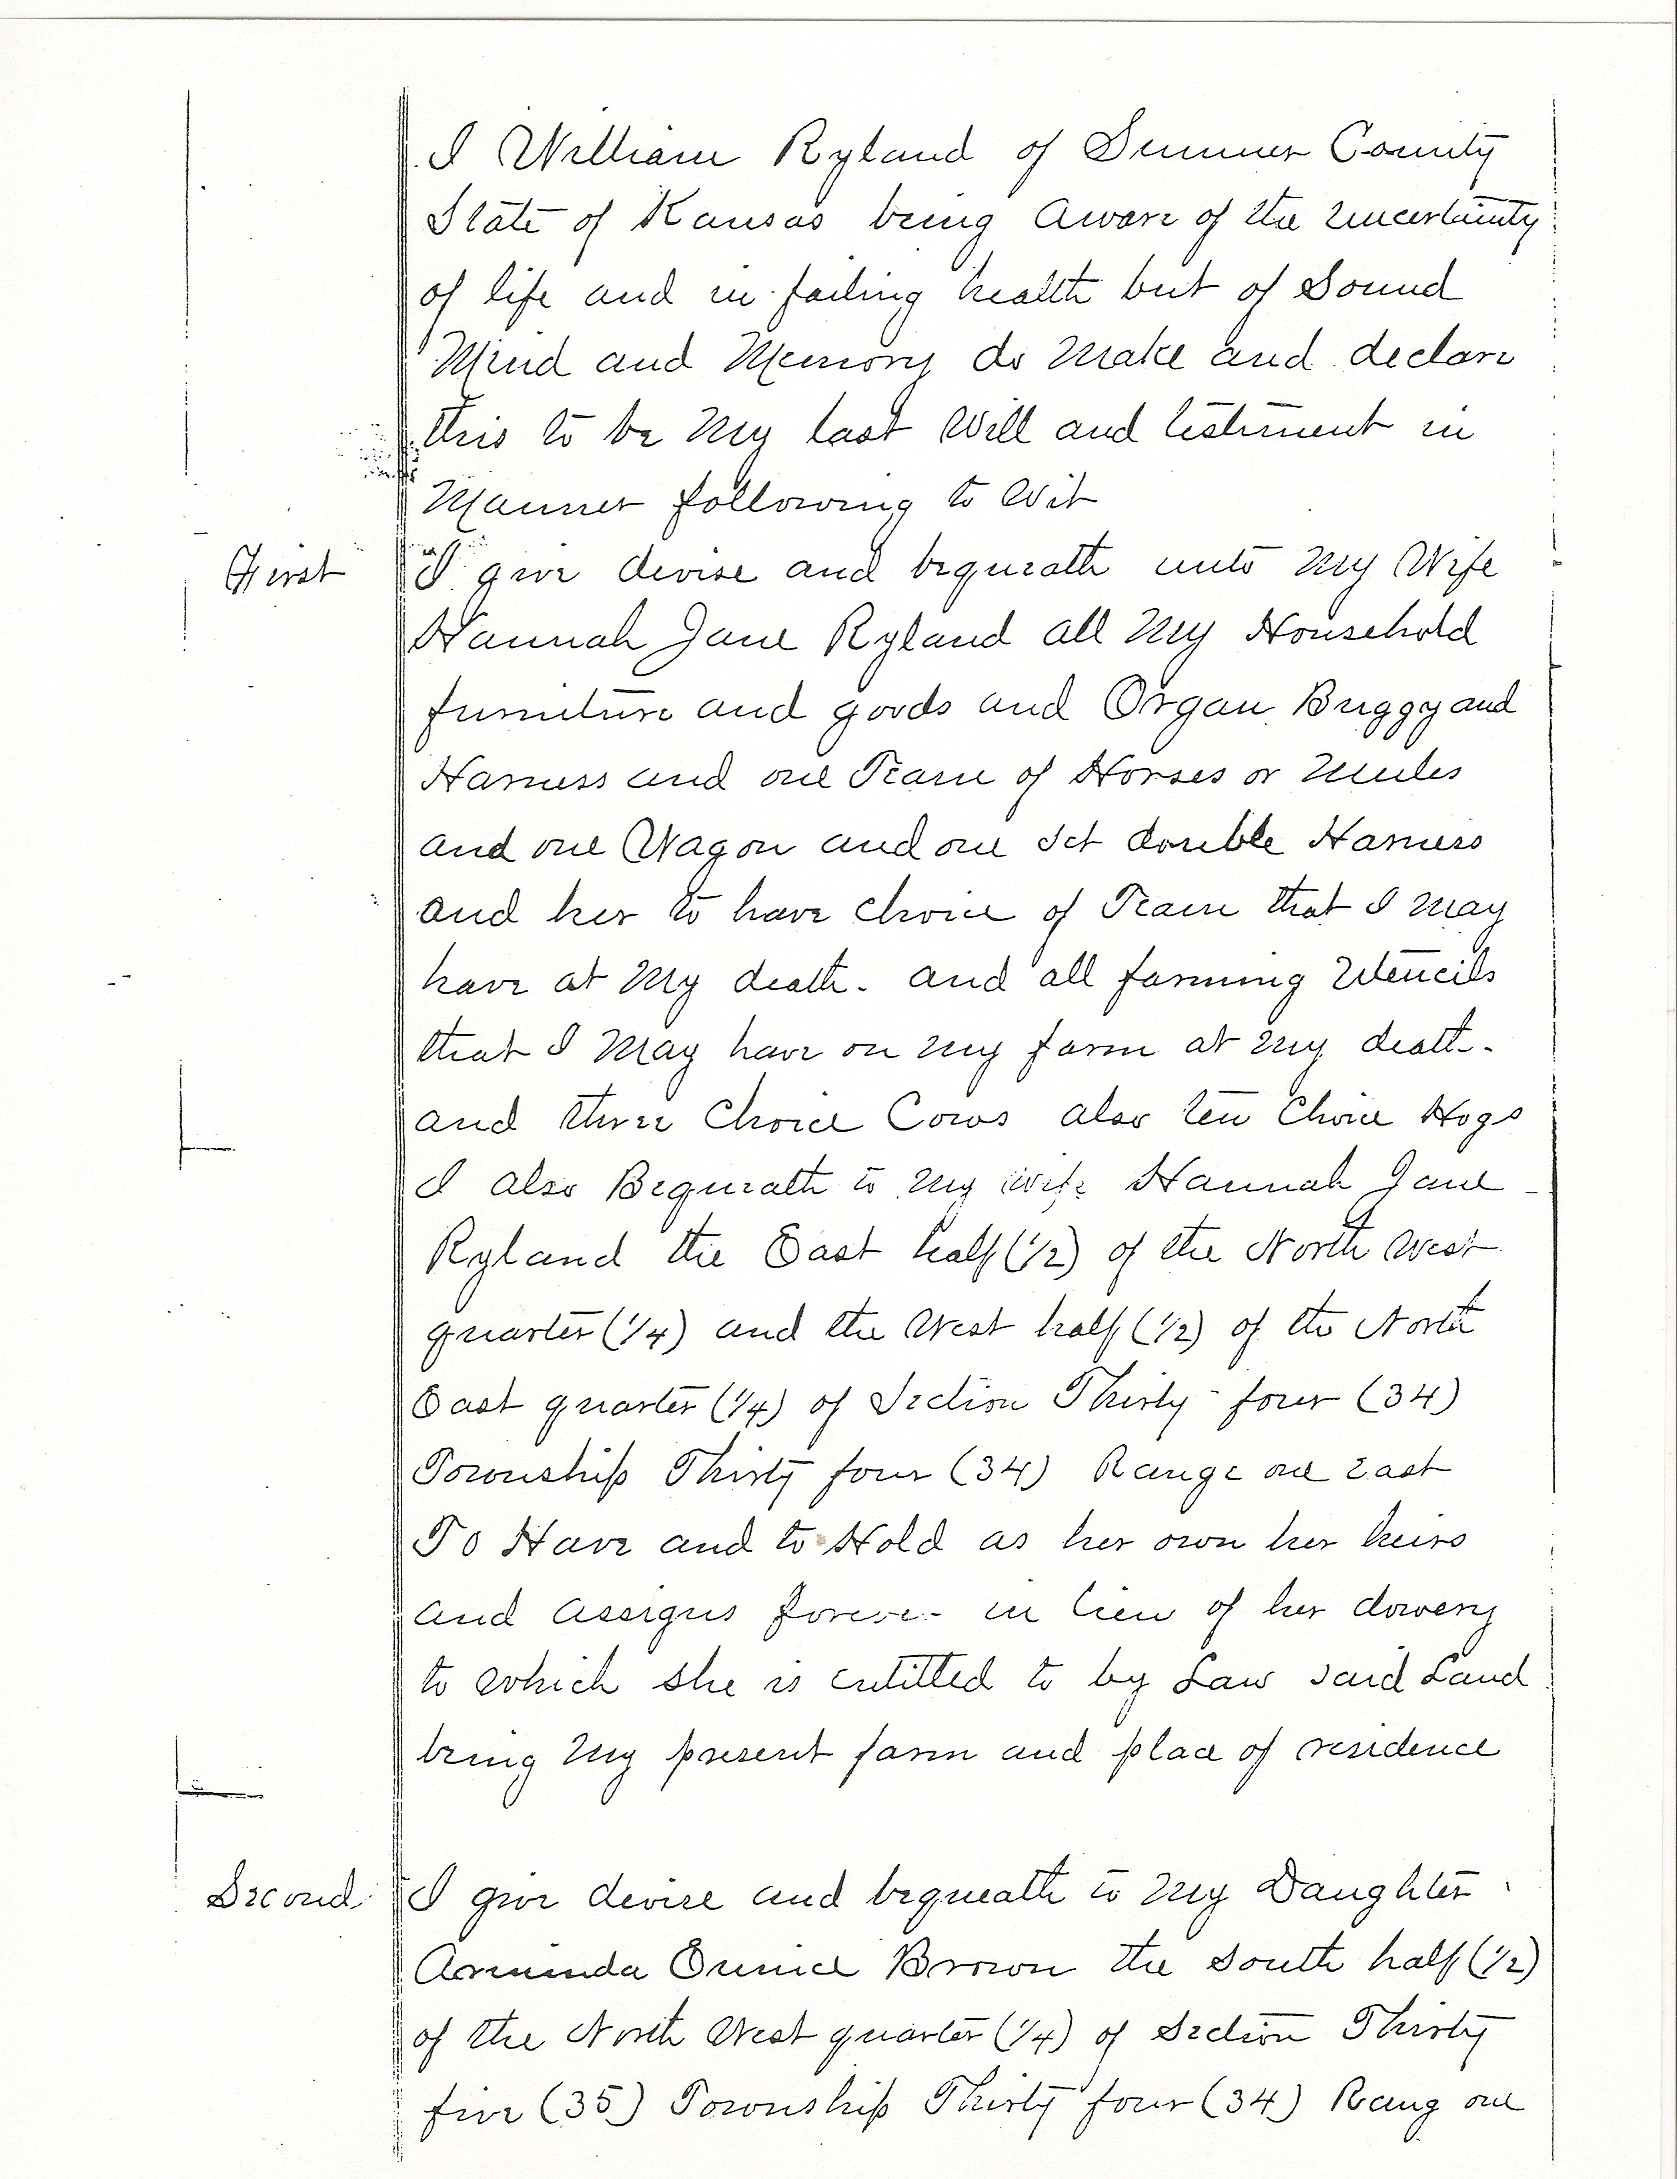 I William Ryland of Sumner County
State of Kansas being aware of the uncertainty
of life and in failing health but of Sound
Mind and Memory do Make and declare
this to be My last Will and testiment in
Manner following to Wit
First I give devise and bequeath unto My Wife
Hannah Jane Ryland all My Household
furniture and goods and Organ Buggy and
Harness and one Team of Horses or Mules
and one Wagon and one set double Harness
and her to have choice of Team that I may
have at My death. and all farming Utencils
that I May have on my farm at my death.
and three Choice Cows also ten Choice Hogs
I also Bequeath to My wife Hannah Jane
Ryland the East half (1/2) of the North West
quarter (1/4) and the West half (1/2) of the North
East quarter (1/4) of Section Thirty-four (34)
Township Thirty four (34) Range one east
To Have and to Hold as her own her heirs
and assigns forever in lieu of her dowery
to which she is entitled to by Law said Land
being My present farm and place of residence
Second I give devise and bequeath to My Daughter
Arminda Eunice Brown the South half (1/2)
of the North West quarter (1/4) of Section Thirty
five (35) Township Thirty four (34) Rang one